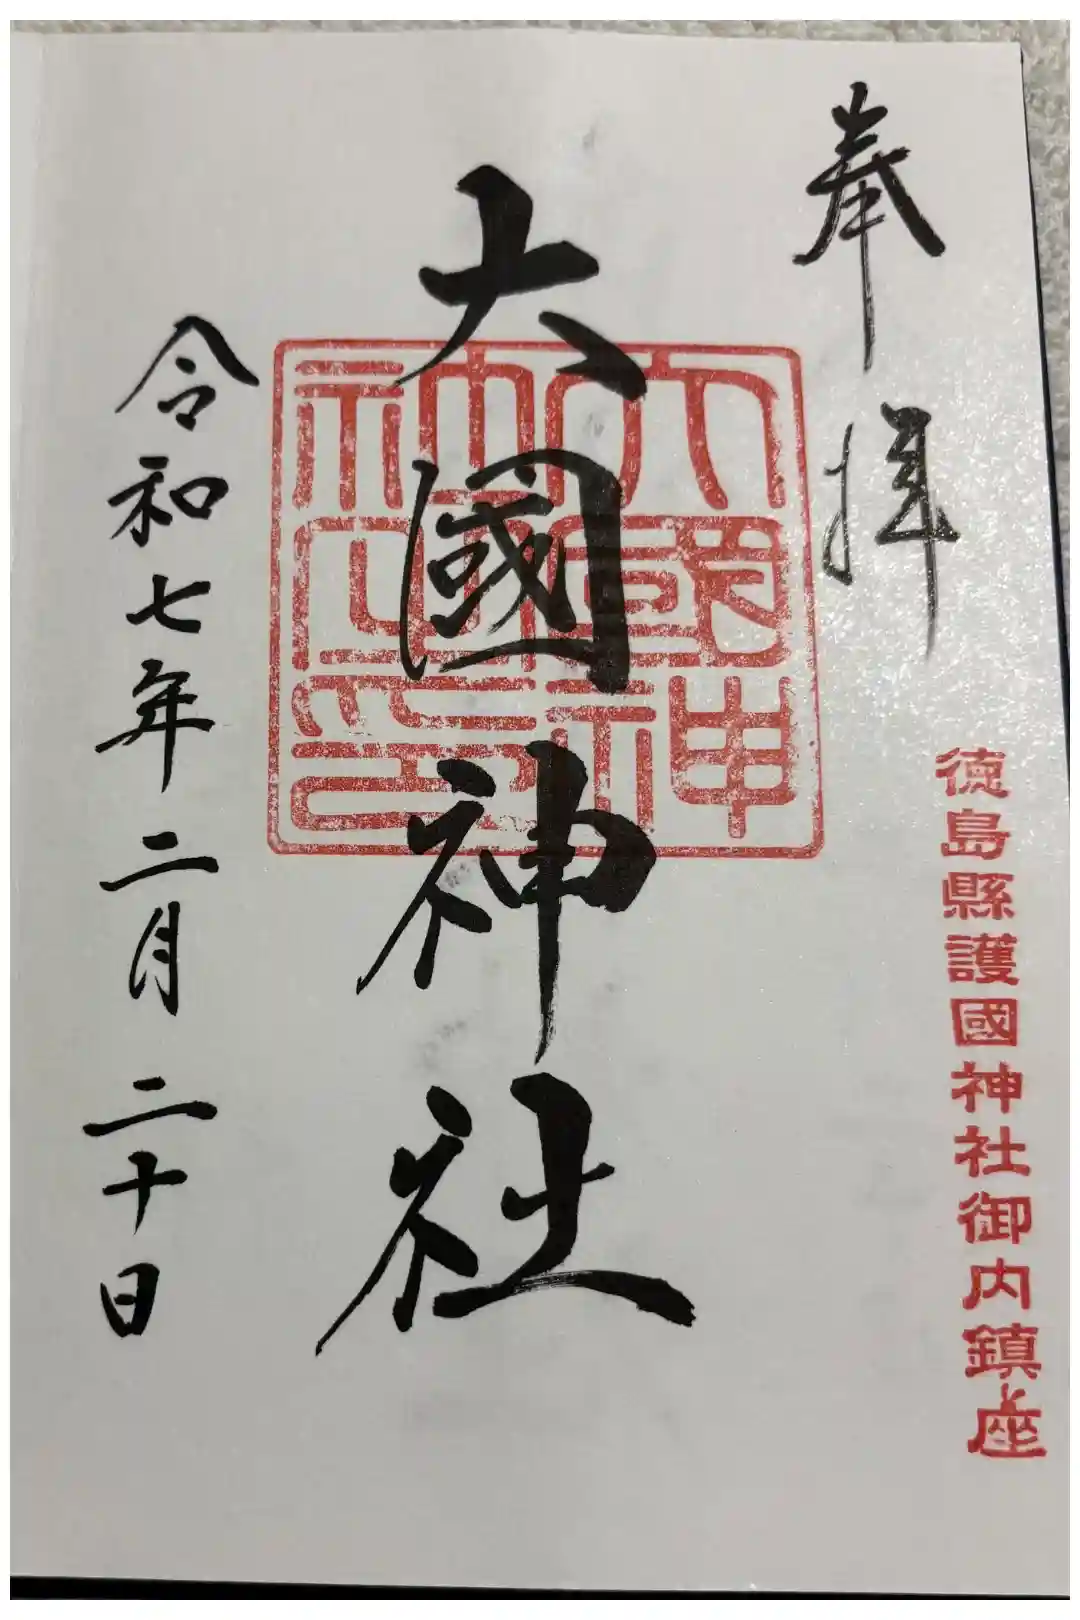 奉拝
徳島縣護國神社御内鎮座
大國神社
大國神
社之印
令和七年二月二十日